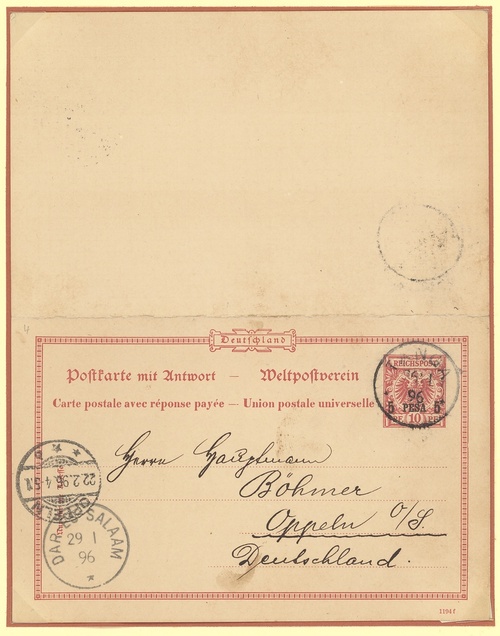 Deutschland
Postkarte mit Antwort — Weltpostverein
Carte postale avec réponse payée — Union postale universelle
REICHSPOST
96
5 PESA 5
PF 10 PF
Herrn Hauptmann
Böhmer
Oppeln O/S.
Deutschland.
22.2.96.4-5N.
OPPELN
DAR-ES-SALAAM
29 1
96
1194f